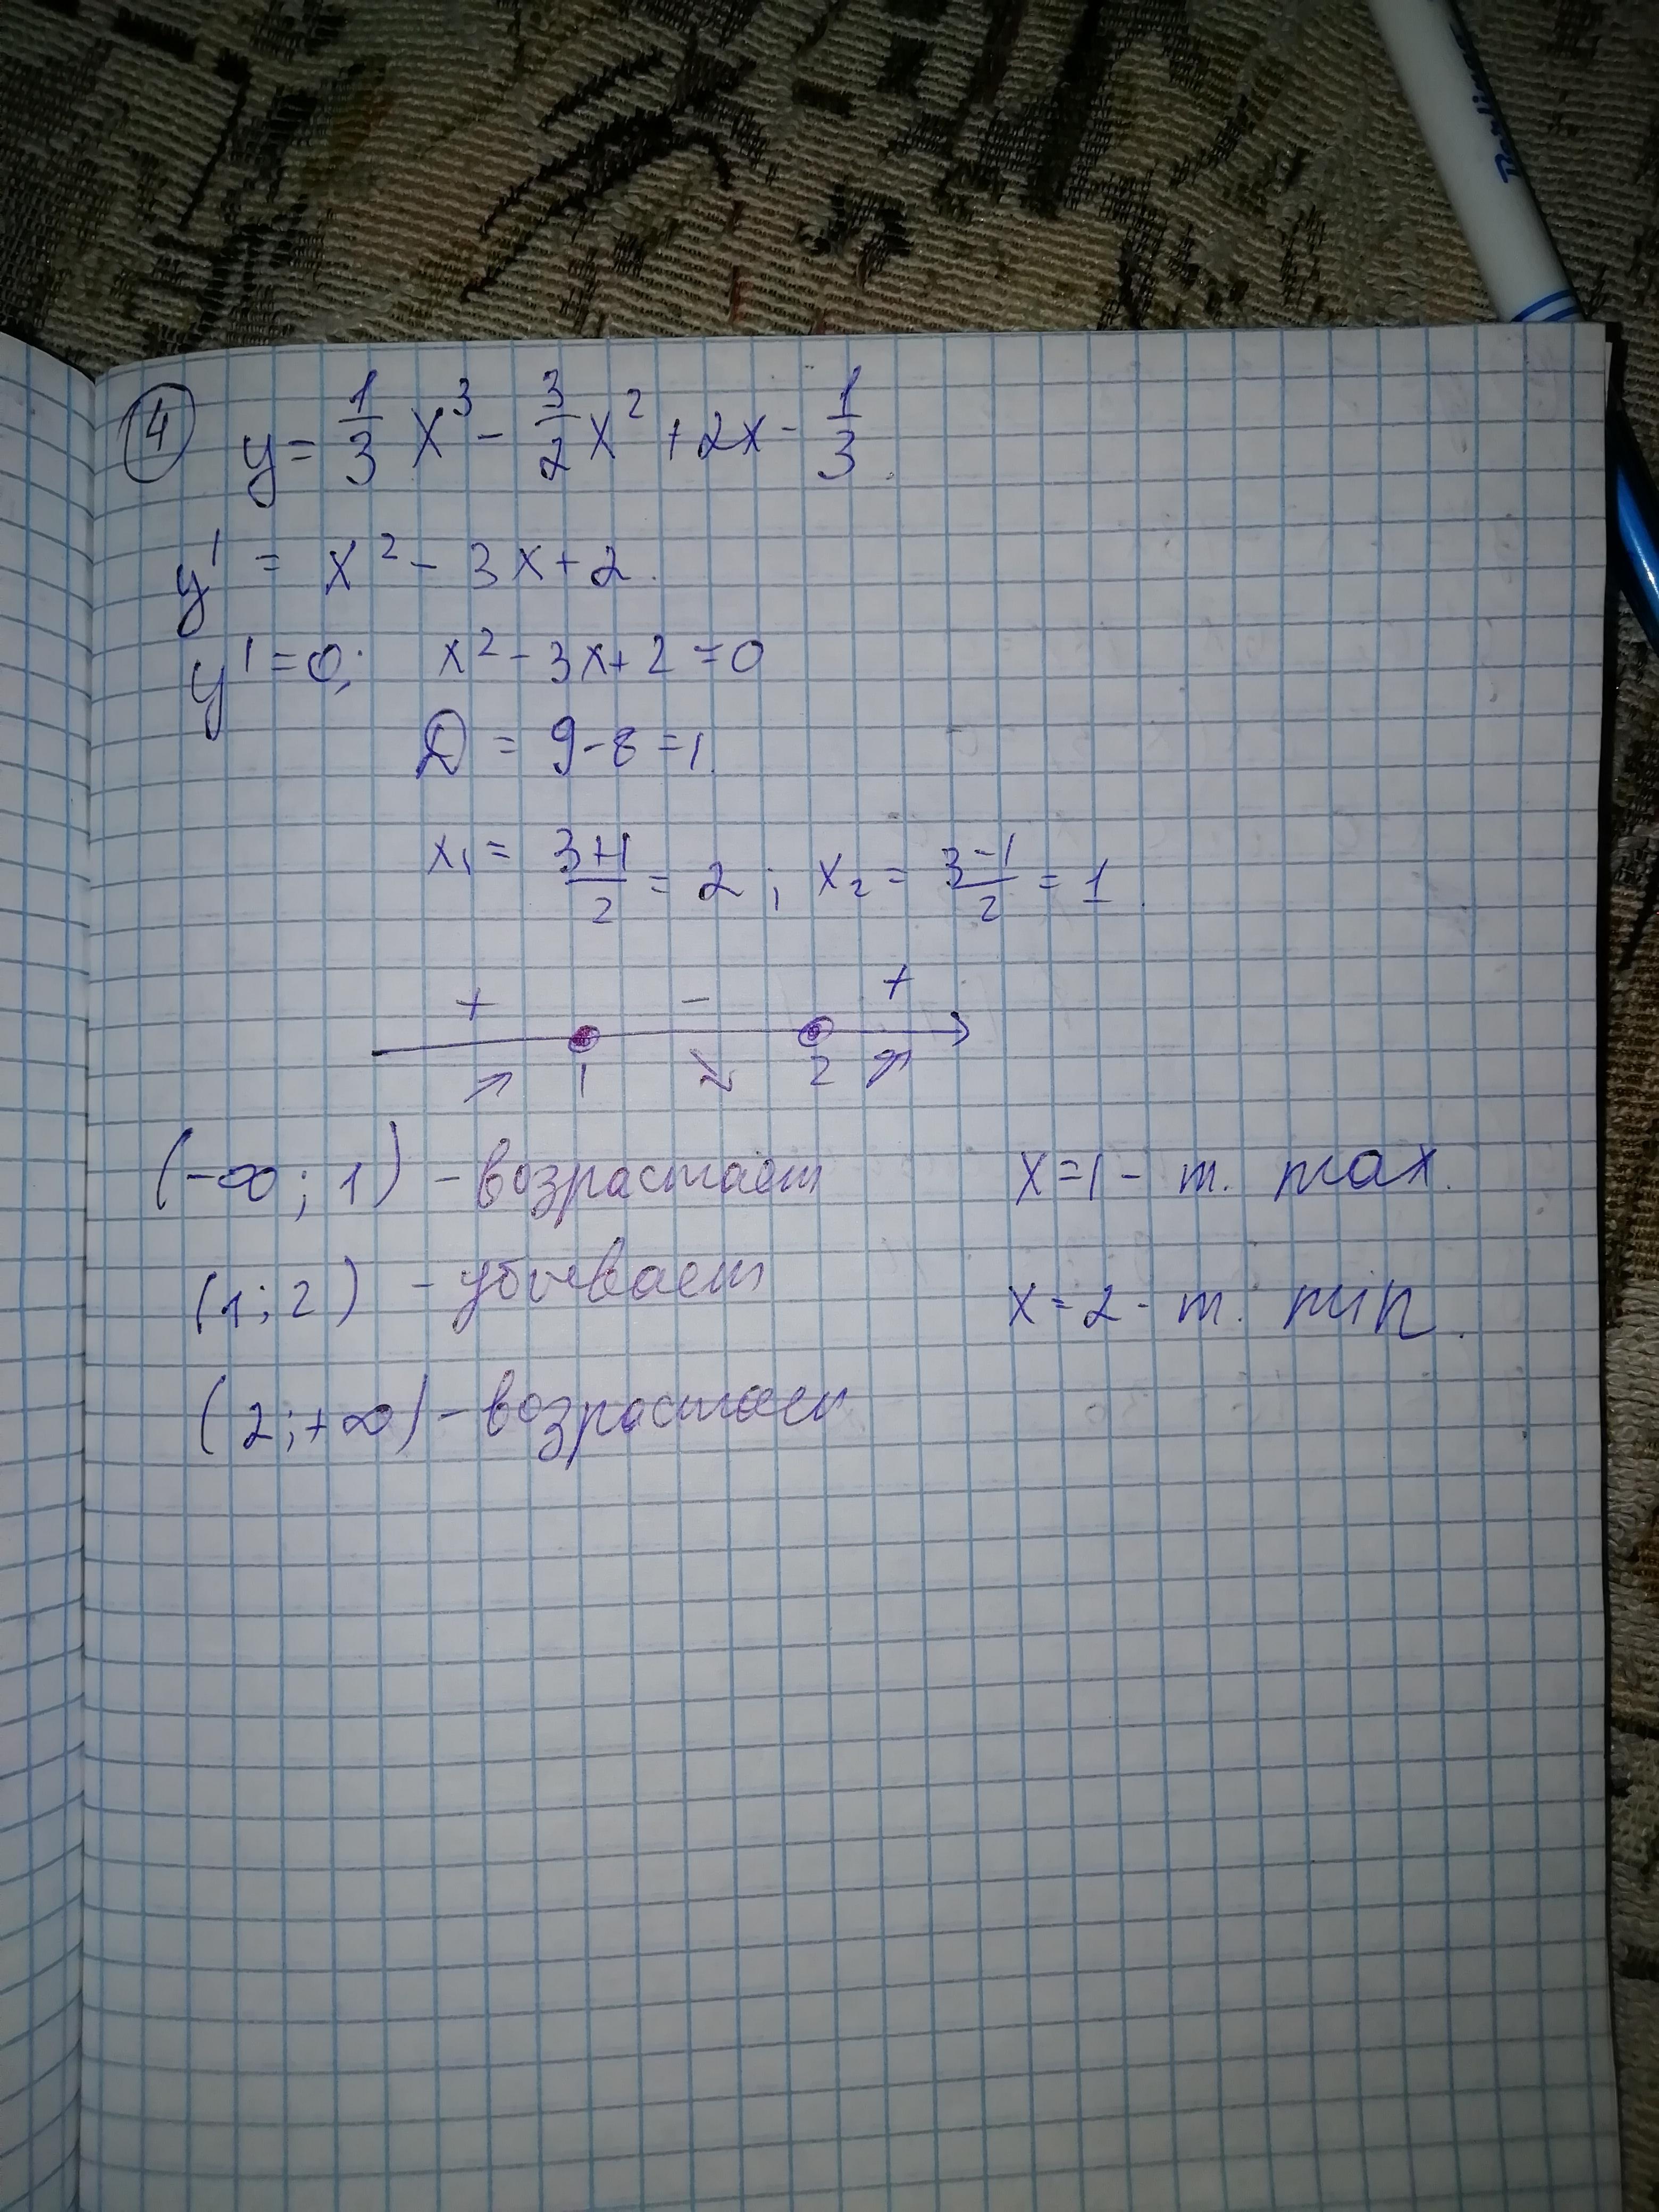 ④ y = 1/3 x³ - 3/2 x² + 2x - 1/3.
y' = x² - 3x + 2.
y' = 0; x² - 3x + 2 = 0
D = 9 - 8 = 1.
x₁ = (3+1)/2 = 2; x₂ = (3-1)/2 = 1.
+ - +
1 2
(-∞; 1) - возрастает x=1 - т. max.
(1; 2) - убывает x=2 - т. min.
(2; +∞) - возрастает